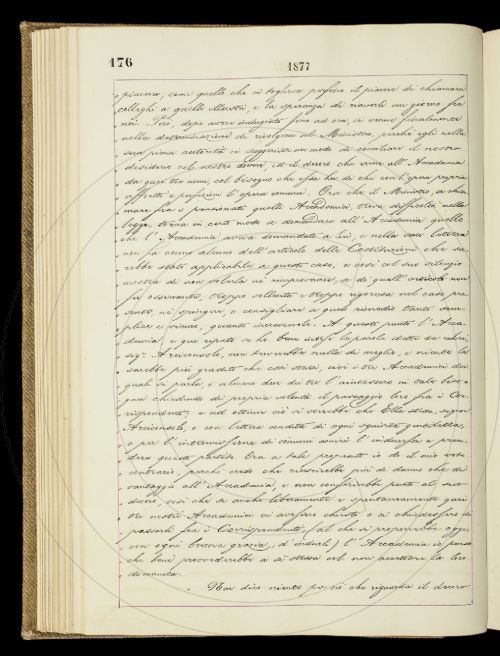 176
1877
piaceva, come quello che ci toglieva perfino il piacere di chiamarci
colleghi a quelli illustri, e la speranza di riaverli un giorno fra
noi. Però, dopo avere indugiato fino ad ora, si venne finalmente
nella determinazione di rivolgersi al Ministro, perchè egli nella
sua piena autorità ci suggerisse un modo di conciliare il nostro
desiderio col nostro dovere, ed il decoro che viene all'Accademia
da quei tre nomi, col bisogno che essa ha di chi con l'opera propria
affretti e perfezioni l'opera comune. Ora che il Ministro, a chia-
mare fra i pensionati quelli Accademici trova difficoltà nella
legge, torna in certo modo a domandare all'Accademia quello
che l'Accademia aveva domandato a lui, e nella sua lettera
non fa cenno alcuno dell'articolo delle Costituzioni che sa-
rebbe stato applicabile a questo caso, e così col suo silenzio
mostra di non volerla nè rimproverare, se di quell'articolo non
fu osservante, troppo sollecita e troppo rigorosa nel caso pre-
sente, nè spingere o consigliare a quel rimedio tanto sem-
plice e sicuro, quanto increscevole. A questo punto l'Acca-
demia, e qui ripeto se ho bene inteso le parole dette da Lei,
sigr. Arciconsolo, non troverebbe nulla di meglio, e niente le
sarebbe più gradito che essi stessi, cioè i tre Accademici dei
quali si parla, o almeno due dei tre l'aiutassero in tale biso-
gna chiedendo di propria volontà il passaggio loro fra i Cor-
rispondenti; e ad ottener ciò si vorrebbe che Ella stessa, signor
Arciconsolo, o con lettera condita di ogni squisita gentilezza,
o per l'intromissione di comuni amici l'inducesse a pren-
dere questo partito. Ora a tale proposta io do il mio voto
contrario, perchè credo che riuscirebbe più di danno che di
vantaggio all'Accademia, e non conferirebbe punto al suo
decoro, così che se anche liberamente e spontaneamente quei
tre nostri Accademici ci avessero chiesto o ci chiedessero di
passarli fra i Corrispondenti, (al che si proporrebbe oggi
con ogni buona grazia, d'indurli) l'Accademia io penso
che bene provvederebbe a sè stessa col non accettare la loro
domanda.
Non dico niente per ciò che riguarda il decoro